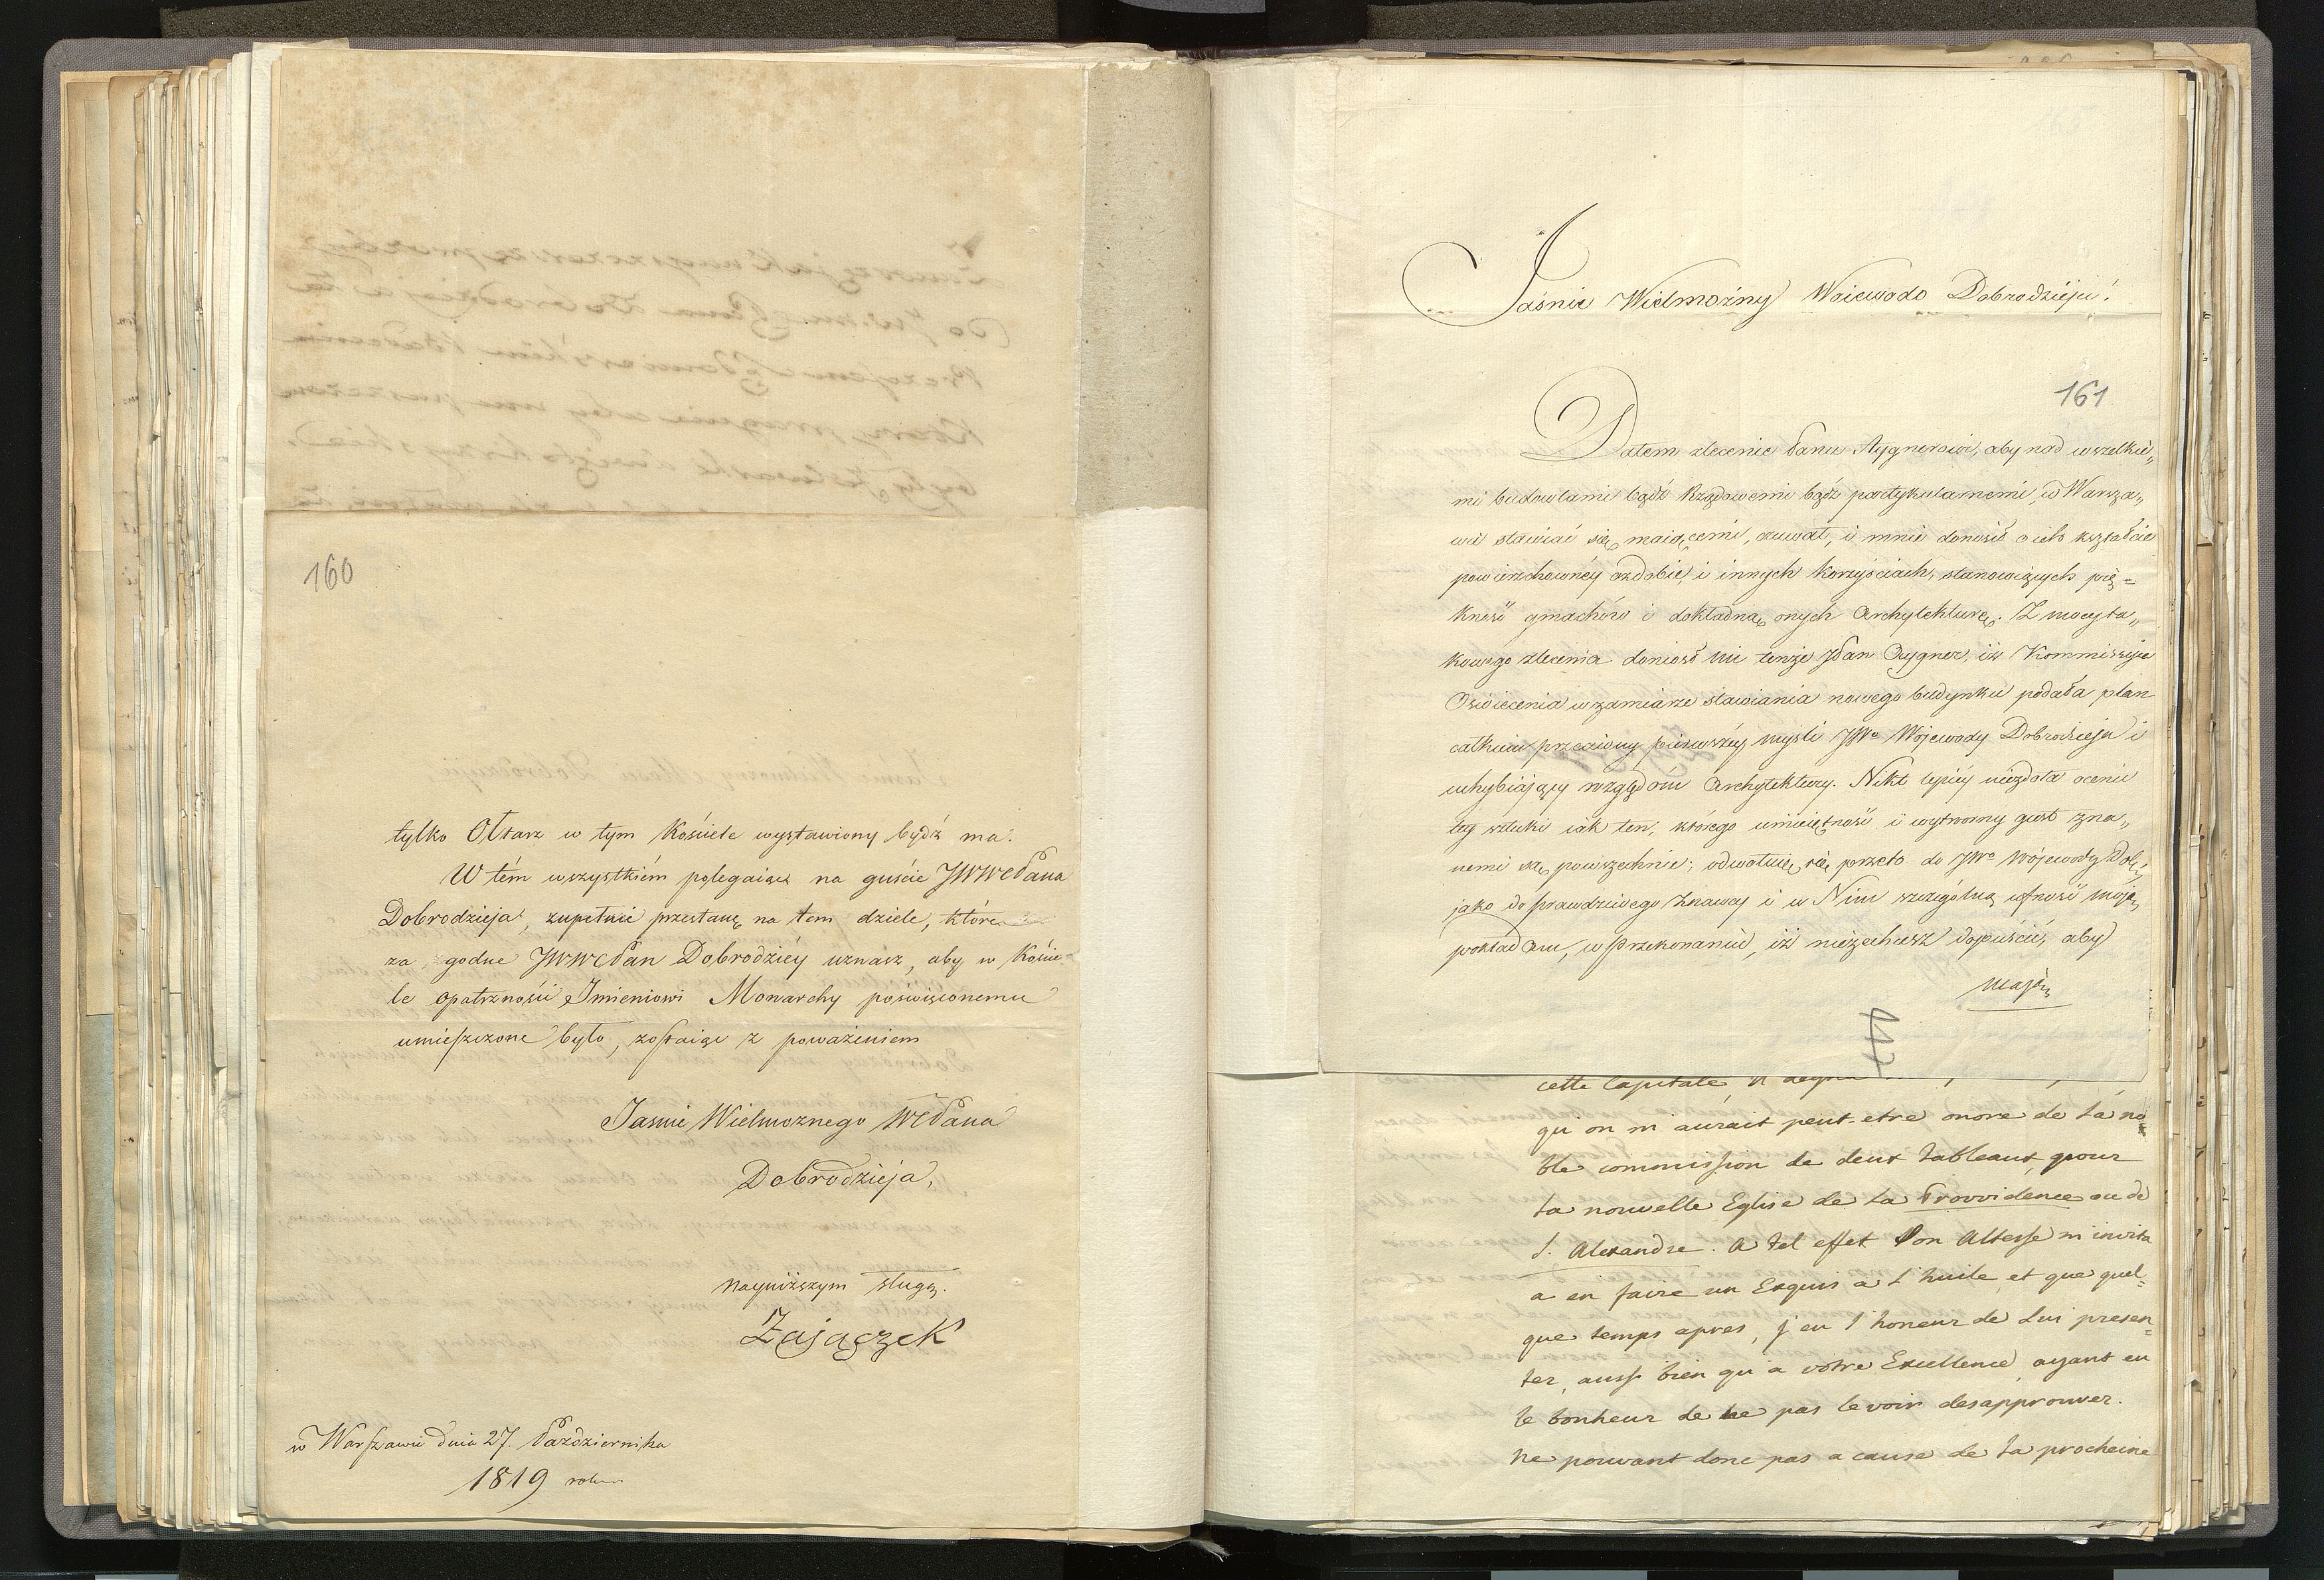 160
tylko Ołtarz w tym Kościele wystawiony bydź ma.
W tém wszystkiém polegaiąc na guście JWWPana
Dobrodzieja, zupełnie przestanę na tem dziele, które
za godne JWWPan Dobrodziéy uznasz, aby w Koście-
le Opatrzności Imieniowi Monarchy poświęconemu
umieszczone było, zostaiąc z poważeniem
Jasnie Wielmoznego WPana
Dobrodzieja,
nayniższym sługą.
Zajączek
w Warszawie dnia 27. Października
1819 roku
Jaśnie Wielmożny Woiewodo Dobrodzieju!
161
Dałem zlecenie Panu Aygnerowi, aby nad wszelkie„
mi budowlami bądź Rządowemi bądź partykularnemi, w Warsza„
wie stawiać się maiącemi, czuwał, i mnie donosił o ich kształcie
powierzchowney ozdobie i innych korzyściach, stanowiących pię=
kność gmachów i dokładną onych Archytekturę. Z mocy ta„
kowego zlecenia doniosł mi tenże JPan Aygner, iż Kommissyia
Oświecenia w zamiarze stawiania nowego budynku podała plan
całkiem przeciwny pierwszéy myśli JWo Wojewody Dobrodzieja i
uchybiający względom Archytektury. Nikt lepiéy niezdoła ocenić
tey sztuki iak ten, którego umieiętność i wytworny gust zna„
nemi są powszechnie; odwołuię się przeto do JWo Wojewody Dob:
jako do prawdziwego znawcy i w Nim szczególną ufność moją
pokładam, w przekonaniu, iż niezechcesz dopuścić, aby
mając
cette Capitale,
qu on m aurait peut-etre onore de la no
ble commission de deux tableaux pour
la nouvelle Eglise de la Provvidence ou de
S. Alexandre. A tel effet Son Altesse m invita
a en faire un Esquis a l huile, et que quel=
que temps apres, j eu l honeur de Lui presen=
ter, aussi bien qu a votre Excellence, ayant eu
le bonheur de ne pas le voir desapprouver.
Ne pouvant donc pas a cause de la procheine